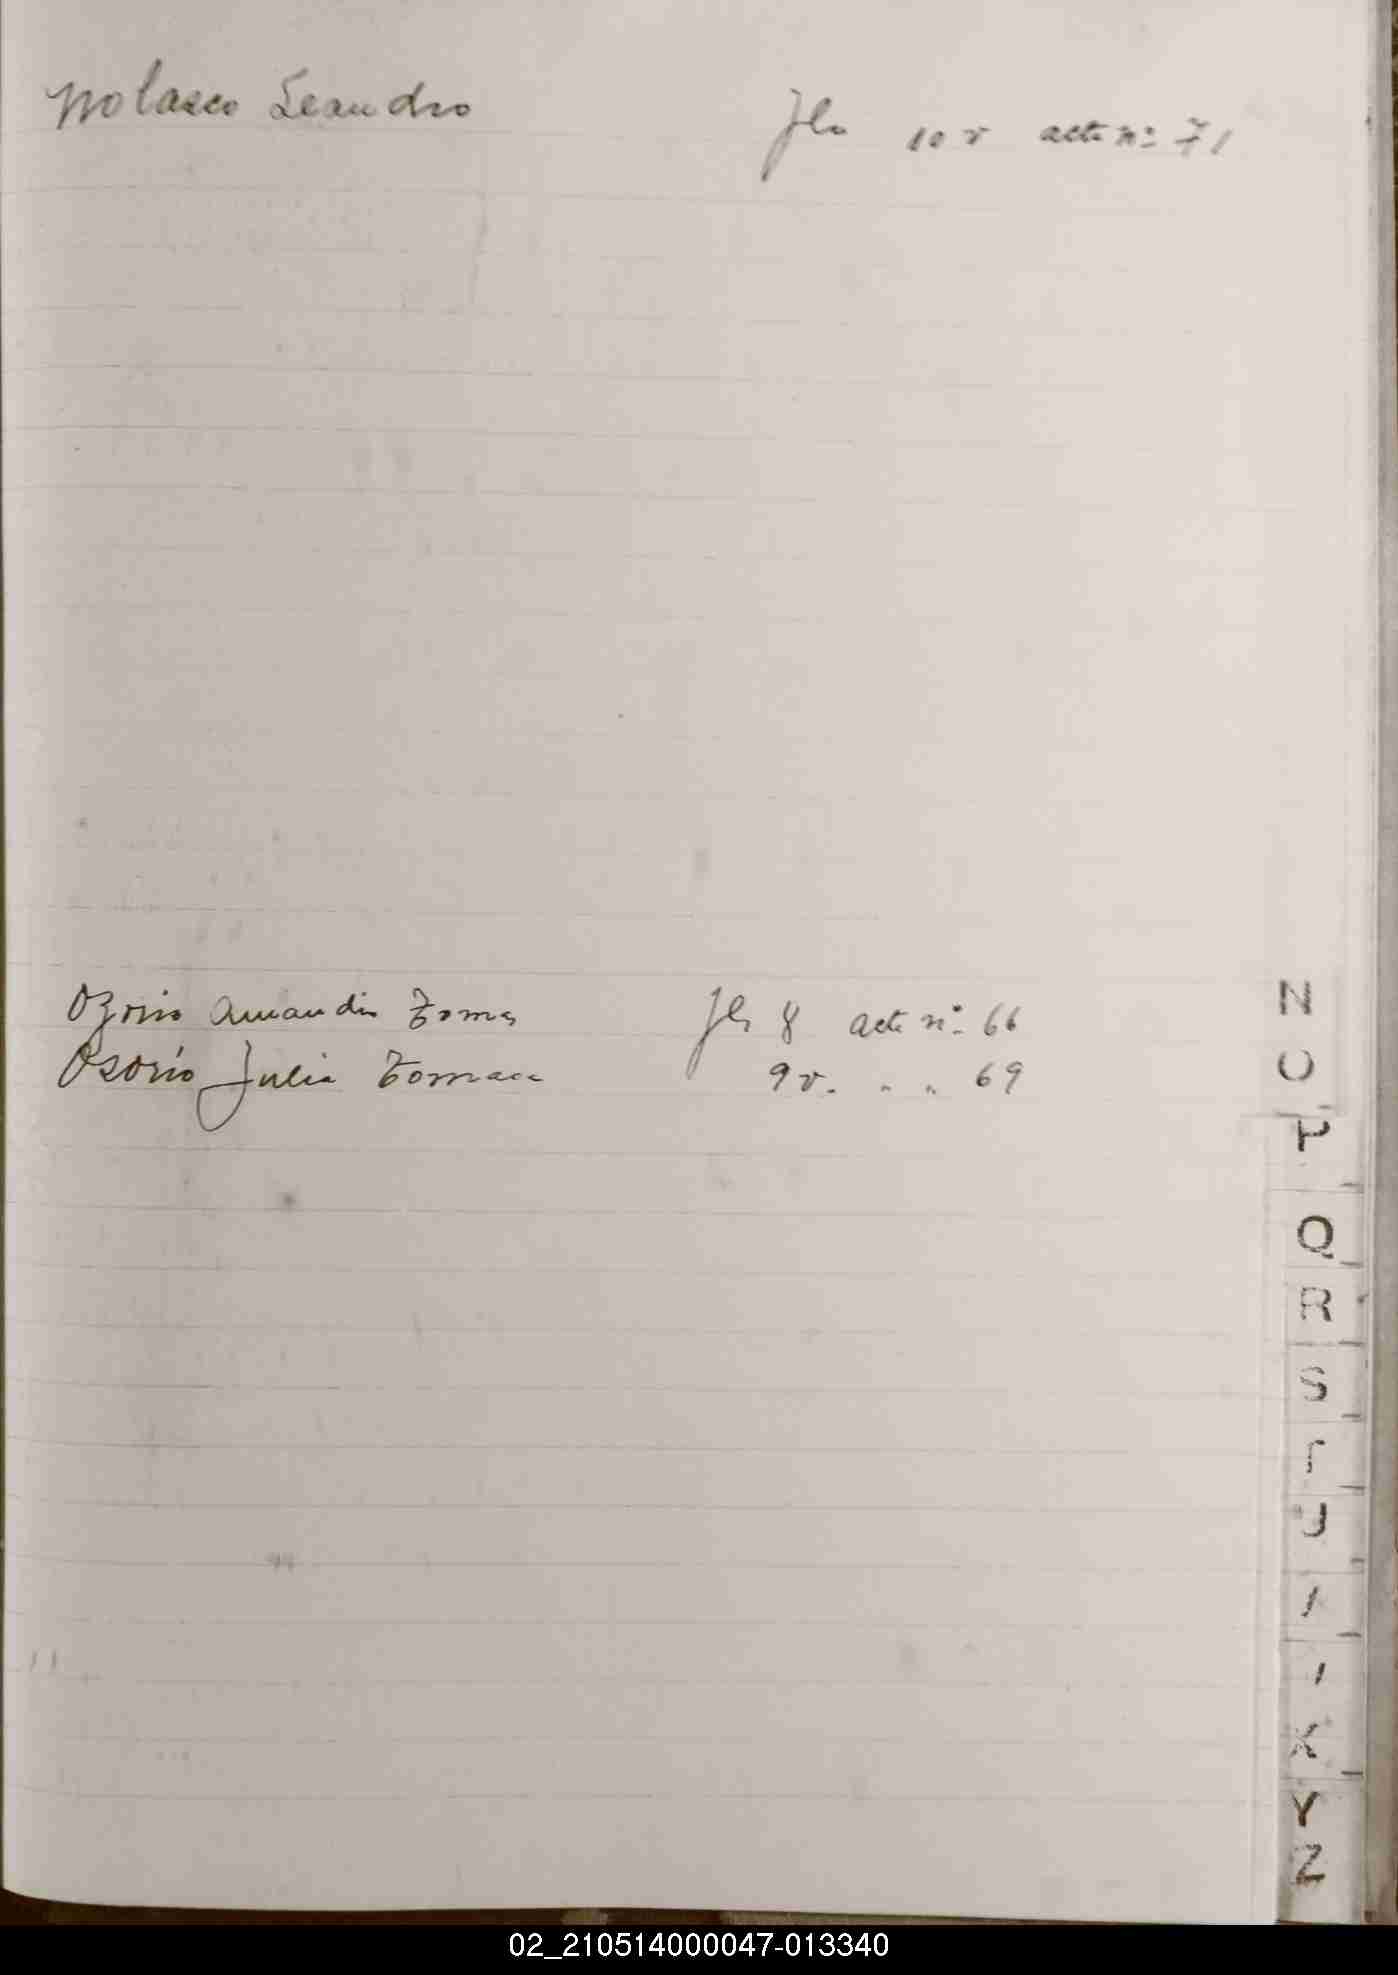 Nolasco Leandro Fls 10 v acta nº 71
Ozorio Amandio Tomas Fls 8 acta nº 66
Osorio Julia Tomasa 9 v. " " 69
N
O
P
Q
R
S
T
U
K
Y
Z
02_210514000047-013340